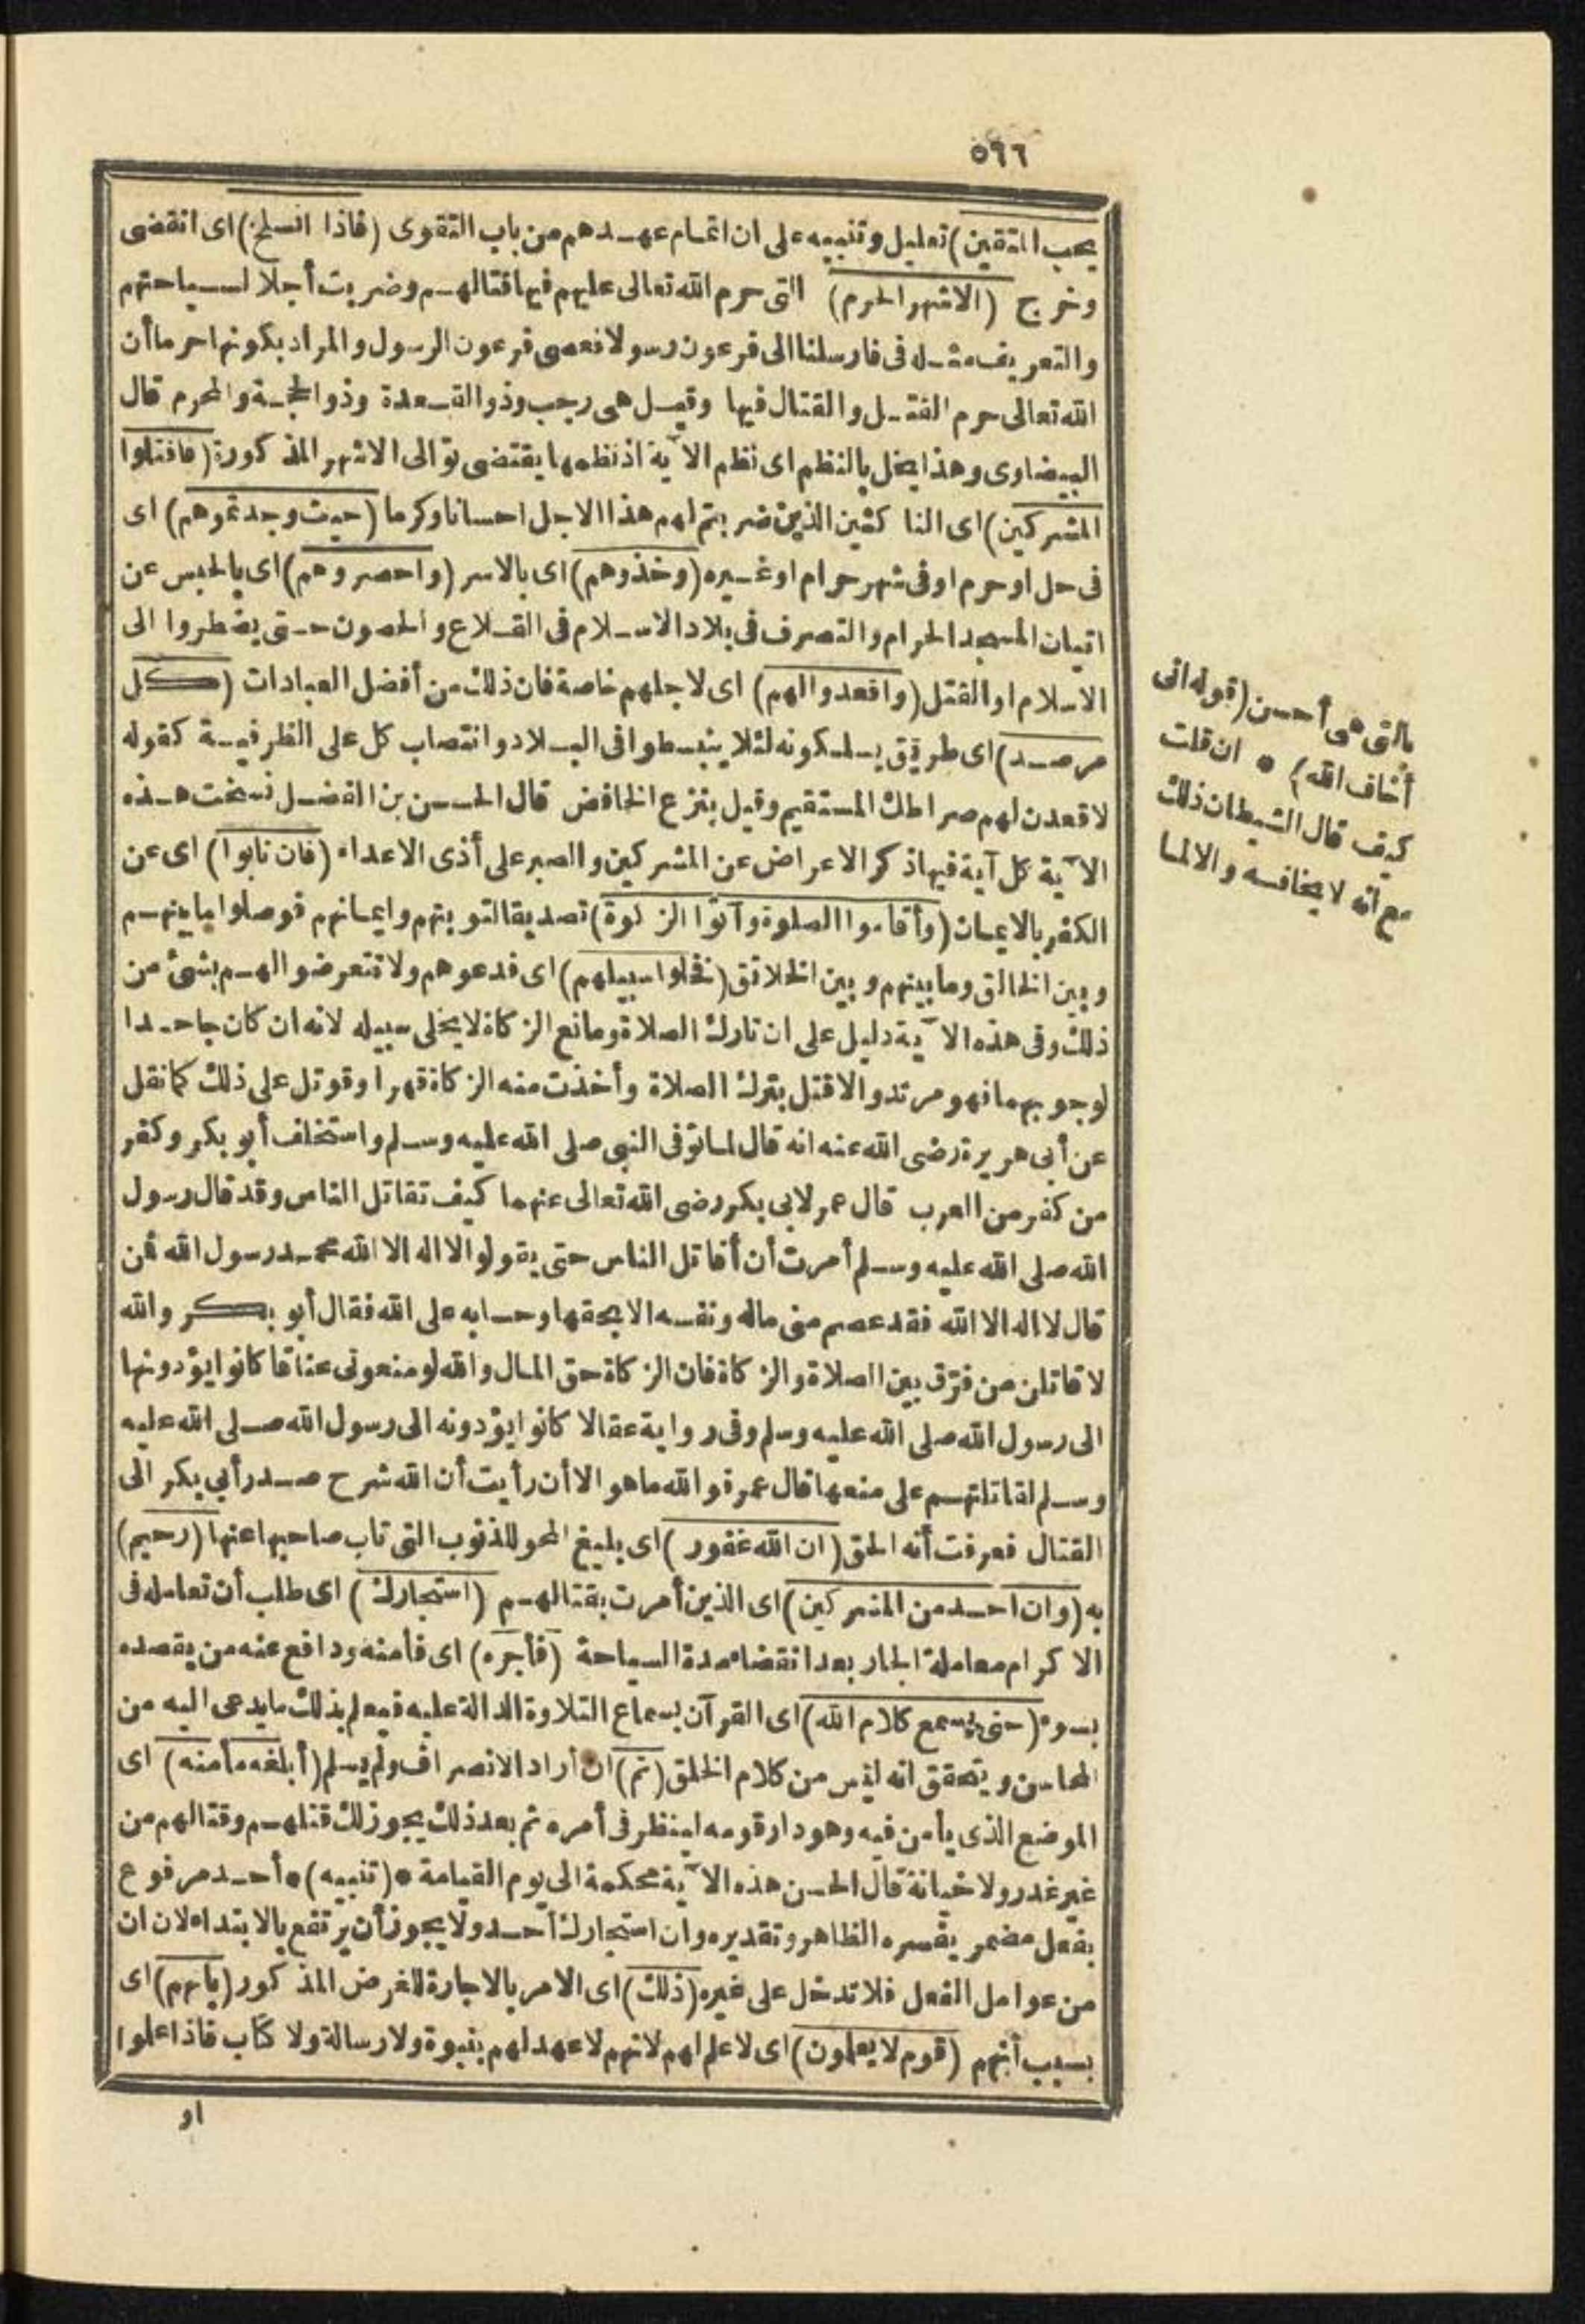 ٥٩٦
يحب المتقين) تعليل وتنبيه على ان اتمام عهدهم من باب التقوى (فاذا انسلخ) اى انقضى
وخرج (الاشهر الحرم) التى حرم الله تعالى عليهم فيها قتالهم وضربت أجلا لسياحتهم
والتعريف مثله فى فارسلنا الى فرعون رسولا فعصى فرعون الرسول والمراد بكونها حرما أن
الله تعالى حرم القتل والقتال فيها وقيل هى رجب وذو القعدة وذو الحجة والمحرم قال
البيضاوى وهذا يخل بالنظم اى نظم الآية اذ نظمها يقتضى توالى الاشهر المذكورة (فاقتلوا
المشركين) اى الناكثين الذين ضربتم لهم هذا الاجل احسانا وكرما (حيث وجدتموهم) اى
فى حل او حرم او فى شهر حرام او غيره (وخذوهم) اى بالاسر (واحصروهم) اى بالحبس عن
اتيان المسجد الحرام والتصرف فى بلاد الاسلام فى القلاع والحصون حتى يضطروا الى
الاسلام او القتل (واقعدوا لهم) اى لاجلهم خاصة فان ذلك من أفضل العبادات (كل
مرصد) اى طريق يسلكونه لئلا ينبسطوا فى البلاد وانتصاب كل على الظرفية كقوله
لاقعدن لهم صراطك المستقيم وقيل بنزع الخافض قال الحسن بن الفضل نسخت هذه
الآية كل آية فيها ذكر الاعراض عن المشركين والصبر على أذى الاعداء (فان تابوا) اى عن
الكفر بالايمان (وأقاموا الصلوة وآتوا الزكوة) تصديقا لتوبتهم وايمانهم فوصلوا ما بينهم
وبين الخالق وما بينهم وبين الخلائق (فخلوا سبيلهم) اى فدعوهم ولا تتعرضوا لهم بشئ من
ذلك وفى هذه الآية دليل على ان تارك الصلاة ومانع الزكاة لا يخلى سبيله لانه ان كان جاحدا
لوجوبهما فهو مرتد والا قتل بترك الصلاة وأخذت منه الزكاة قهرا وقوتل على ذلك كما نقل
عن أبى هريرة رضى الله عنه انه قال لما توفى النبى صلى الله عليه وسلم واستخلف أبو بكر وكفر
من كفر من العرب قال عمر لابى بكر رضى الله تعالى عنهما كيف تقاتل الناس وقد قال رسول
الله صلى الله عليه وسلم أمرت أن أقاتل الناس حتى يقولوا لا اله الا الله محمد رسول الله فمن
قال لا اله الا الله فقد عصم منى ماله ونفسه الا بحقها وحسابه على الله فقال أبو بكر والله
لاقاتلن من فرّق بين الصلاة والزكاة فان الزكاة حق المال والله لو منعونى عناقا كانوا يؤدونها
الى رسول الله صلى الله عليه وسلم وفى رواية عقالا كانوا يؤدونه الى رسول الله صلى الله عليه
وسلم لقاتلتهم على منعها قال عمر فوالله ما هو الا أن رأيت أن الله شرح صدر أبى بكر الى
القتال فعرفت أنه الحق (ان الله غفور) اى بليغ المحو للذنوب التى تاب صاحبها عنها (رحيم)
به (وان احد من المشركين) اى الذين أمرت بقتالهم (استجارك) اى طلب أن تعامله فى
الاكرام معاملة الجار بعد انقضاء مدة السياحة (فأجره) اى فأمنه ودافع عنه من يقصده
بسوء (حتى يسمع كلام الله) اى القرآن بسماع التلاوة الدالة عليه فيعلم بذلك ما يدعى اليه من
المحاسن ويتحقق انه ليس من كلام الخلق (ثم) ان أراد الانصراف ولم يسلم (أبلغه مأمنه) اى
الموضع الذى يأمن فيه وهو دار قومه لينظر فى أمره ثم بعد ذلك يجوز لك قتلهم وقتالهم من
غير غدر ولا خيانة قال الحسن هذه الآية محكمة الى يوم القيامة * (تنبيه) * أحد مرفوع
بفعل مضمر يفسره الظاهر وتقديره وان استجارك أحد ولا يجوز أن يرتفع بالابتداء لان ان
من عوامل الفعل فلا تدخل على غيره (ذلك) اى الامر بالاجارة للغرض المذكور (بانهم) اى
بسبب أنهم (قوم لا يعلمون) اى لا علم لهم لانهم لا عهد لهم بنبوة ولا رسالة ولا كتاب فاذا علموا
او
بالتى هى أحسن (قوله انى
أخاف الله) * ان قلت
كيف قال الشيطان ذلك
مع أنه لا يخافه والا لما